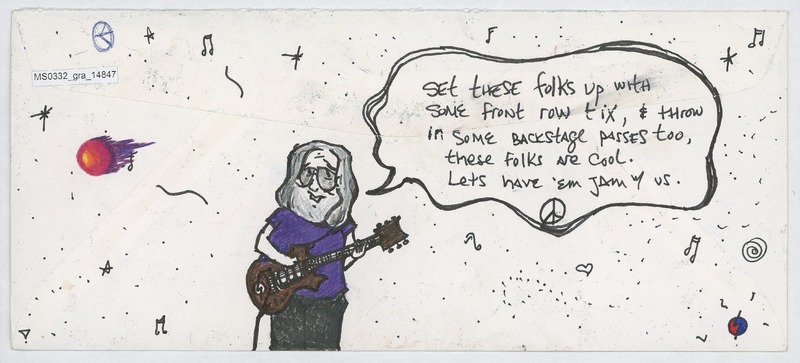 MS0332_gra_14847
SET THESE folks up with
SOME front row tix, & THROW
in SOME BACKSTAGE PASSES too,
these folks are cool.
Lets have 'em JAM w/ us.